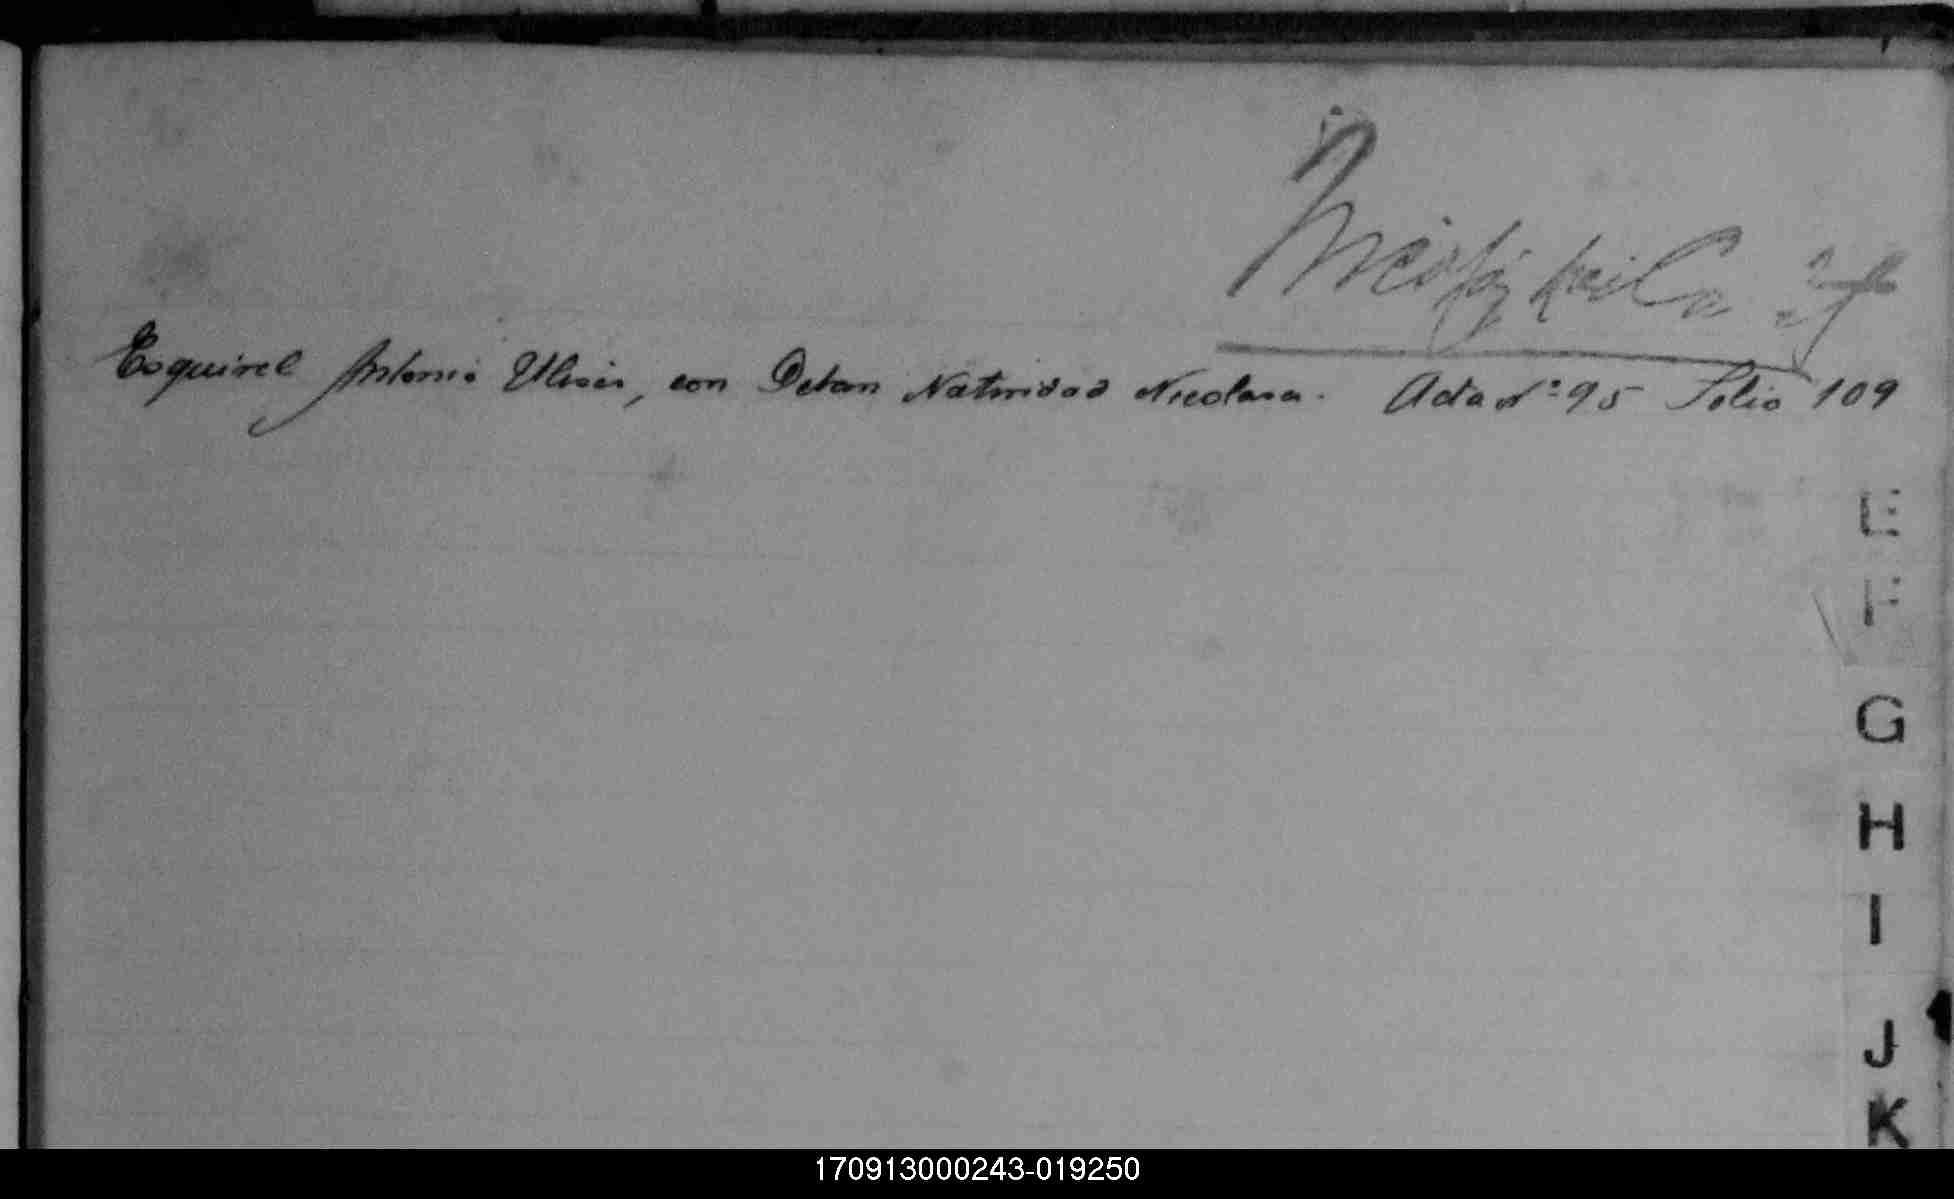 Esquivel Antonio Ulises, con Natividad Nicolasa. Acta Nº 95 Folio 109
E
F
G
H
I
J
K
170913000243-019250